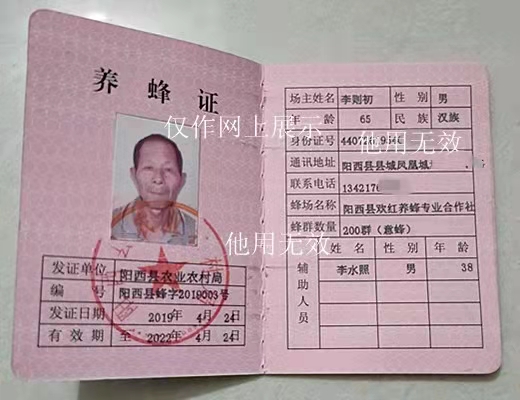 养蜂证
仅作网上展示
他用无效
他用无效
发证单位 阳西县农业农村局
编号 阳西县蜂字2019003号
发证日期 2019年 4月 24日
有效期 至 2022年 4月 24日
场主姓名 李则初 性别 男
年龄 65 民族 汉族
身份证号
通讯地址 阳西县县城凤凰城
联系电话 1342176
蜂场名称 阳西县欢红养蜂专业合作社
蜂群数量 200群（意蜂）
辅助人员 姓名 性别 年龄
李水照 男 38